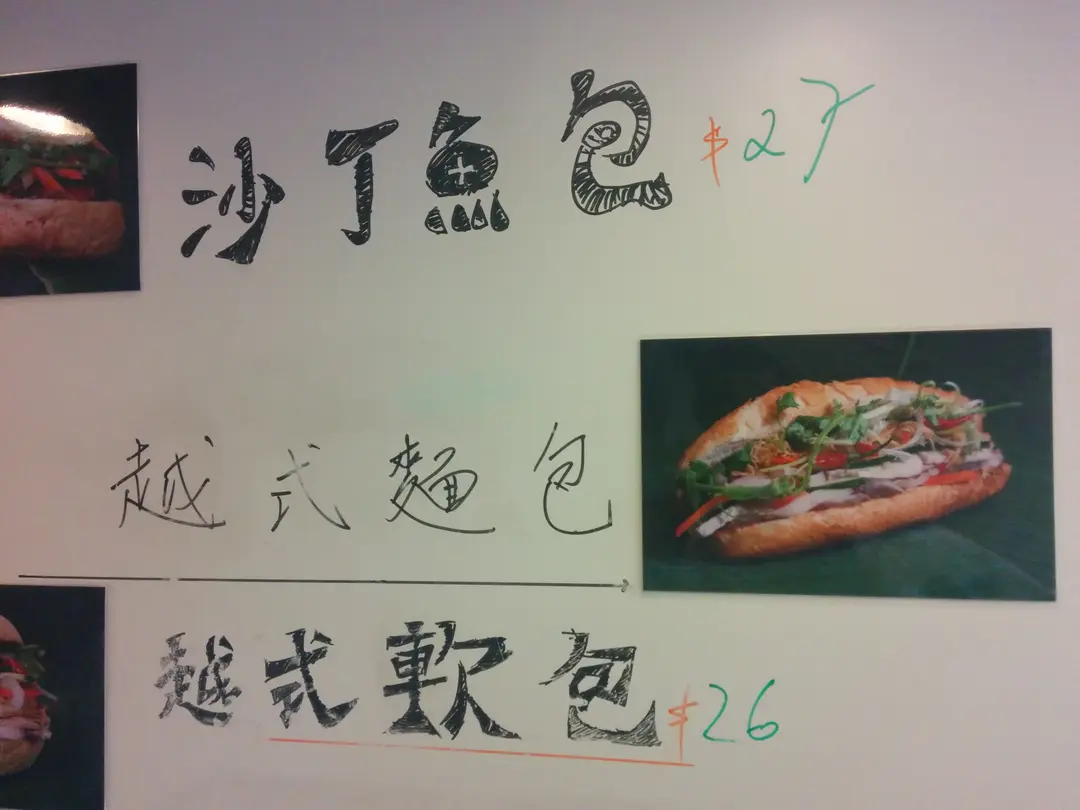 沙丁魚包 $27
越式麵包
越式軟包 $26